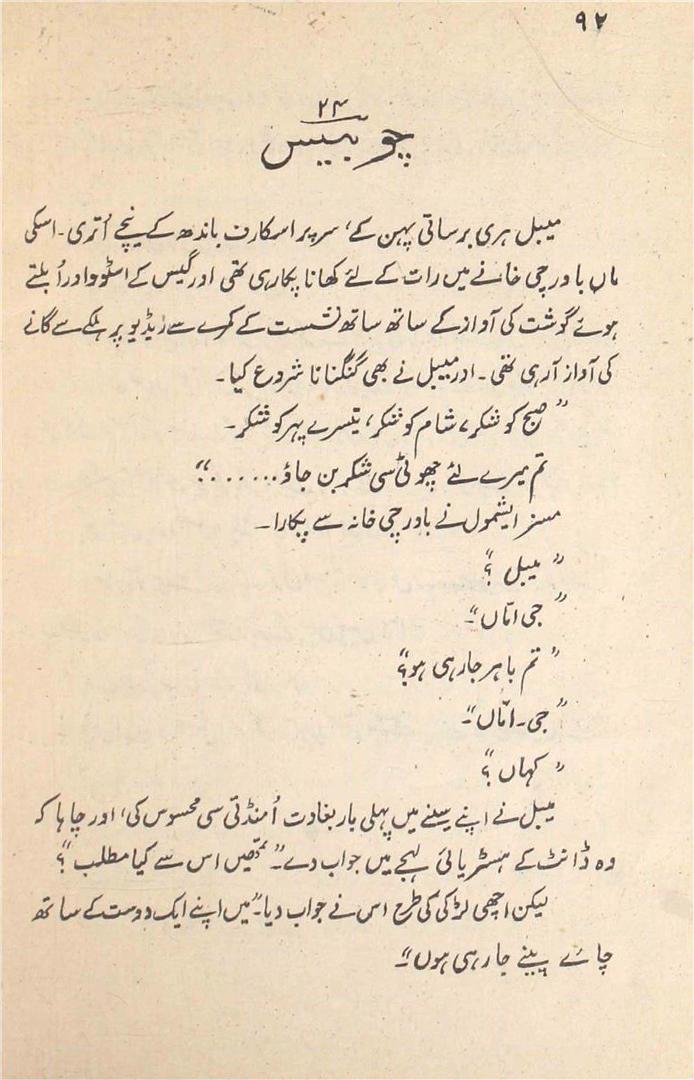 ۹۲
۲۴
چوبیس
میبل ہری برساتی پہن کے، سر پر اسکارف باندھ کے نیچے اُتری۔ اسکی
ماں باورچی خانے میں رات کے لئے کھانا پکا رہی تھی اور گیس کے اسٹوو اور اُبلتے
ہوئے گوشت کی آواز کے ساتھ ساتھ نشست کے کمرے سے ریڈیو پر ہلکے سے گانے
کی آواز آرہی تھی۔ اور میبل نے بھی گنگنانا شروع کیا۔
”صبح کو شکر، شام کو شکر، تیسرے پہر کو شکر۔
تم میرے لئے چھوٹی سی شکر بن جاؤ......“
مسز ایشمول نے باورچی خانہ سے پکارا۔
”میبل؟“
”جی امّاں“۔
”تم باہر جارہی ہو؟“
”جی۔ امّاں“۔
”کہاں؟“
میبل نے اپنے سینے میں پہلی بار بغاوت اُمنڈتی سی محسوس کی، اور چاہا کہ
وہ ڈانٹ کے ہسٹریائی لہجے میں جواب دے۔ ”تمھیں اس سے کیا مطلب؟“
لیکن اچھی لڑکی کی طرح اس نے جواب دیا۔ ”میں اپنے ایک دوست کے ساتھ
چائے پینے جارہی ہوں“۔